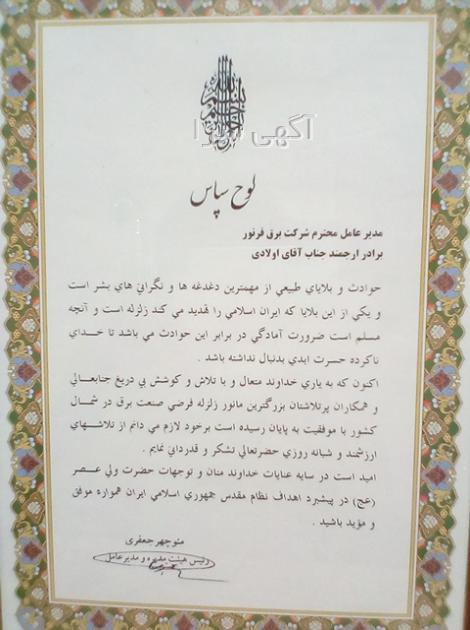 بسم الله الرحمن الرحیم
آگهی
لوح سپاس
مدیر عامل محترم شرکت برق فرنور
برادر ارجمند جناب آقای اولادی
حوادث و بلایای طبیعی از مهمترین دغدغه ها و نگرانی های بشر است
و یکی از این بلایا که ایران اسلامی را تهدید می کند زلزله است و آنچه
مسلم است ضرورت آمادگی در برابر این حوادث می باشد تا خدای
ناکرده حسرت ابدی بدنبال نداشته باشد .
اکنون که به یاری خداوند متعال و با تلاش و کوشش بی دریغ جنابعالی
و همکاران پرتلاشتان بزرگترین مانور زلزله فرضی صنعت برق در شمال
کشور با موفقیت به پایان رسیده است برخود لازم می دانم از تلاشهای
ارزشمند و شبانه روزی حضرتعالی تشکر و قدردانی نمایم .
امید است در سایه عنایات خداوند منان و توجهات حضرت ولی عصر
(عج) در پیشبرد اهداف نظام مقدس جمهوری اسلامی ایران همواره موفق
و مؤید باشید .
منوچهر جعفری
رئیس هیئت مدیره و مدیر عامل